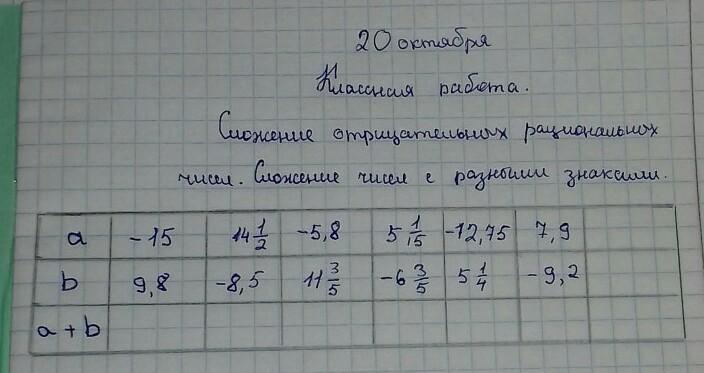 20 октября
Классная работа.
Сложение отрицательных рациональных
чисел. Сложение чисел с разными знаками.
a -15 14 1/2 -5,8 5 1/15 -12,75 7,9
b 9,8 -8,5 11 3/5 -6 3/5 5 1/4 -9,2
a + b